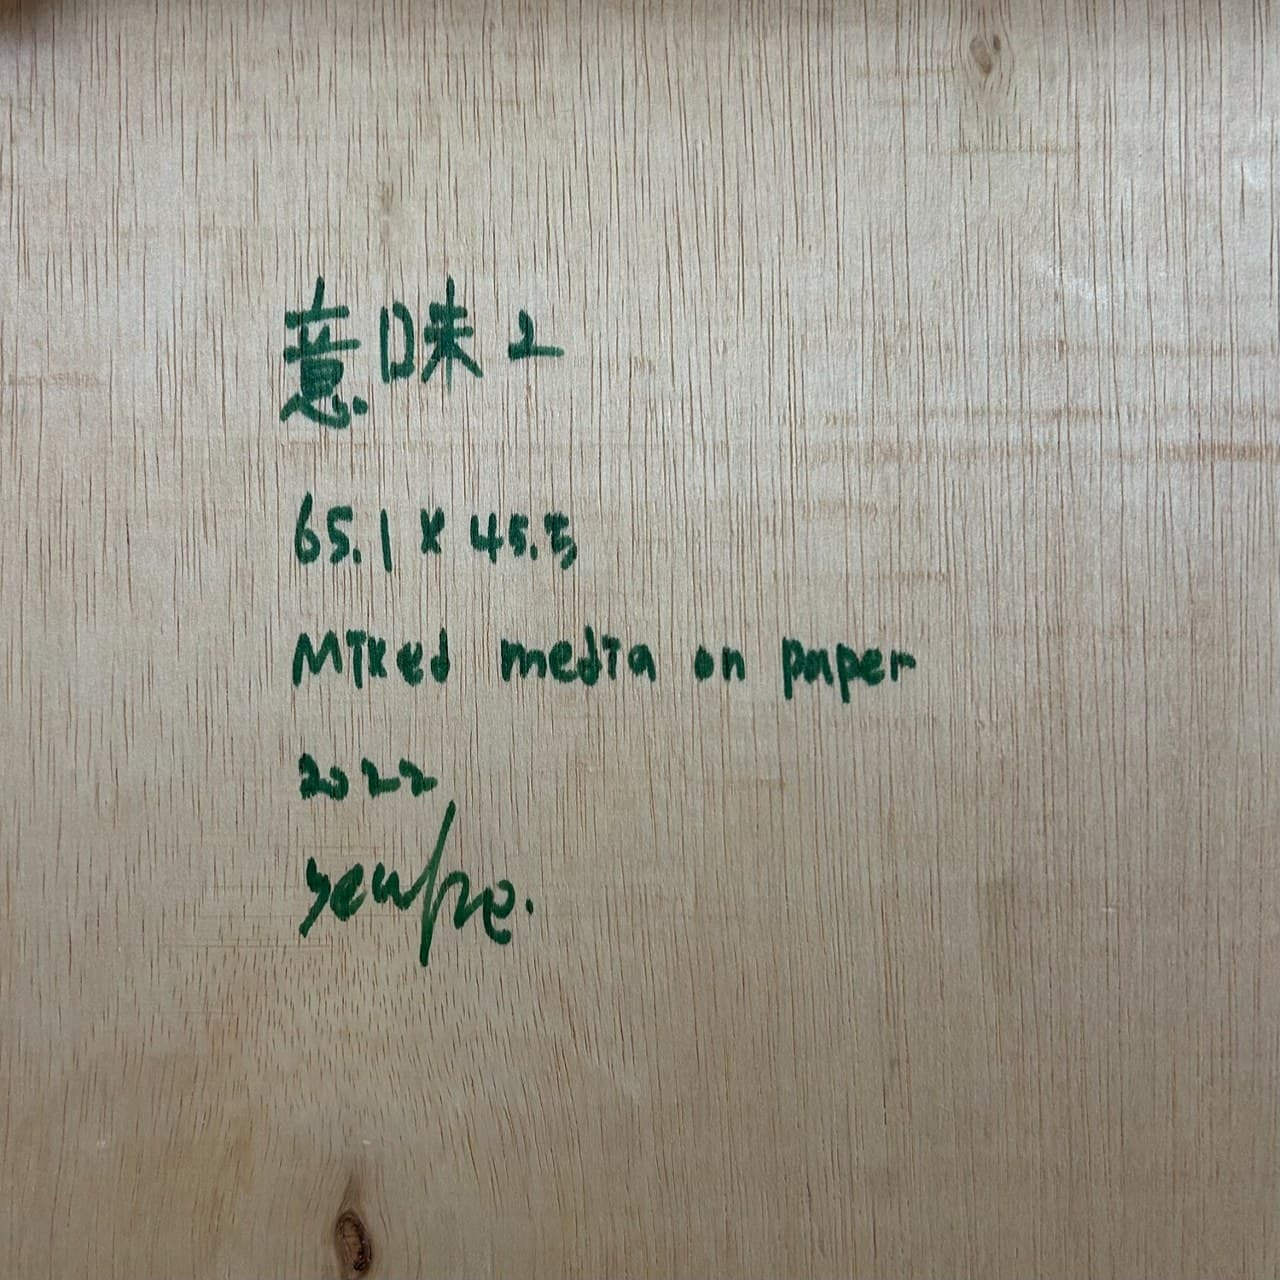 意味 2
65.1 x 45.5
Mixed media on paper
2022